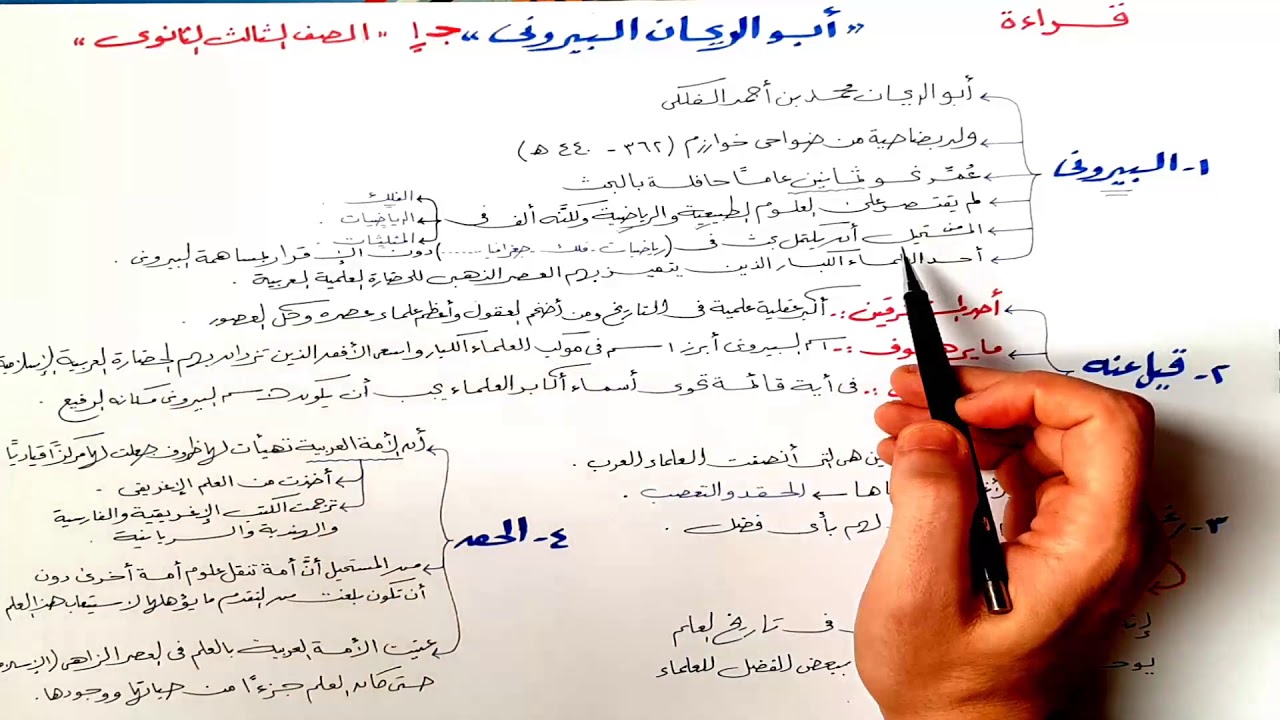 قراءة
"أبو الريحان البيرونى" جـ١ "الصف الثالث الثانوى"
١- البيرونى
أبو الريحان محمد بن أحمد الفلكى
ولد بضاحية من ضواحى خوارزم (٣٦٢ - ٤٤٠ هـ)
عُمِّر نحو ثمانين عاماً حافلة بالبحث
لم يقتصر على العلوم الطبيعية والرياضية ولكنَّه ألف فى
الفلك
الرياضيات
المثلثات
من المستحيل أن يكتمل بحث فى (رياضيات - فلك - جغرافيا ......) دون الإقرار بمساهمة البيرونى .
أحد العلماء الكبار الذين يتميز بهم العصر الذهبى للحضارة العلمية العربية .
٢- قيل عنه
أحد :- أكبر عقلية علمية فى التاريخ ومن أضخم العقول وأعظم علماء عصره وكل العصور .
ماير :- اسم البيرونى أبرز اسم فى موكب العلماء الكبار واسعى الأفق الذين تزدان بهم الحضارة العربية الإسلامية
:- فى أية قائمة تحوى أسماء أكابر العلماء يجب أن يكون لاسم البيرونى مكانه الرفيع .
٣-
هى التى أنصفت العلماء العرب .
الحقد والتعصب .
لهم بأى فضل .
فى تاريخ العلم
ببعض الفضل للعلماء
٤-
أن الأمة العربية تهيأت لها ظروف جعلت لها مركزاً قيادياً
أخذت من العلم الإغريقى .
ترجمت الكتب الإغريقية والفارسية
والهندية والسريانية .
من المستحيل أنَّ أمة تنقل علوم أمة أخرى دون
أن تكون بلغت من التقدم ما يؤهلها لاستيعاب هذا العلم
عنيت الأمة العربية بالعلم فى العصر الزاهى
حتى كان العلم جزءًا من حياتها ووجودها .